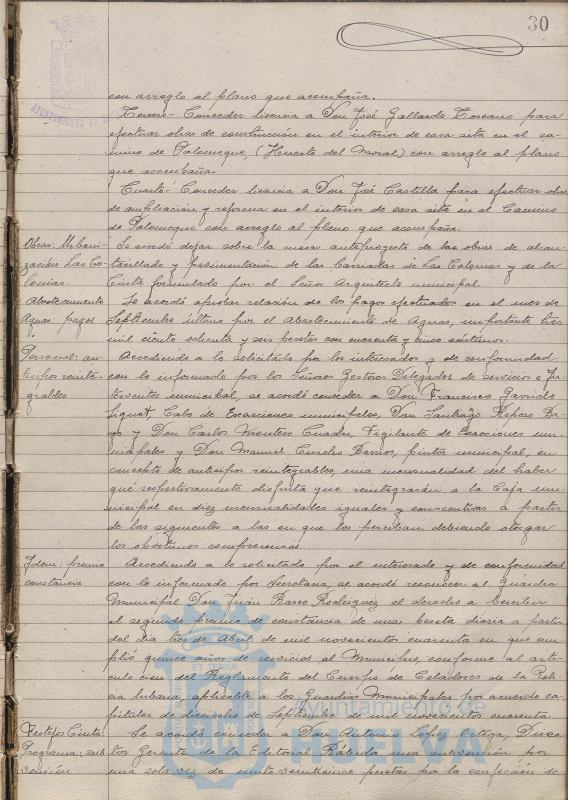 30
con arreglo al plano que acompaña.
Tercero - Conceder licencia a Don José Gallardo Toscano para
efectuar obras de construcción en el interior de casa sita en el ca-
mino de Palomeque, (Huerto del Moral) con arreglo al plano
que acompaña.
Cuarto: Conceder licencia a Don José Castilla para efectuar obras
de ampliación y reforma en el interior de casa sita en el Camino
de Palomeque con arreglo al plano que acompaña.
Obras: Urbani-
zación Las Co-
lonias.
Se acordó dejar sobre la mesa anteproyecto de las obras de alcan-
tarillado y pavimentación de las barriadas de Las Colonias y de la
Cinta formulado por el Señor Arquitecto municipal.
Abastecimiento
Aguas: pagos
Se acordó aprobar relación de los pagos efectuados en el mes de
Septiembre último por el Abastecimiento de Aguas, importante tres
mil ciento ochenta y seis pesetas con cuarenta y cinco céntimos.
Personal: an-
ticipos reinte-
grables
Accediendo a lo solicitado por los interesados y de conformidad
con lo informado por los Señores Gestores Delegados de servicios e In-
terventor municipal, se acordó conceder a Don Francisco Garrido
Cabo de Exacciones municipales, Don Santiago Reposo
y Don Carlos Montero Cuadri, Vigilante de Exacciones mu-
nicipales y Don Manuel Barrios, pintor municipal, en
concepto de anticipos reintegrables, una mensualidad del haber
que respectivamente disfruta que reintegrarán a la Caja mu-
nicipal en diez mensualidades iguales y consecutivas a partir
de las siguientes a las en que los perciban debiendo otorgar
los oportunos compromisos.
Idem: premio
constancia
Accediendo a lo solicitado por el interesado y de conformidad
con lo informado por Secretaría, se acordó reconocer al Guardia
Municipal Don Juan Rasco Rodríguez el derecho a percibir
el segundo premio de constancia de una peseta diaria a partir
del día tres de Abril de mil novecientos cuarenta en que cum-
plió quince años de servicios al Municipio, conforme al artí-
culo cien del Reglamento del Cuerpo de Celadores de la Poli-
cía Urbana aplicable a los Guardias Municipales por acuerdo ca-
pitular de dieciocho de Septiembre de mil novecientos cuarenta.
Festejos Cinta:
Programa: sub-
vención
Se acordó conceder a Don Antonio López Ortega, Direc-
tor Gerente de la Editorial Rábida una subvención por
una sola vez de ciento veinticinco pesetas por la confección de
Ayuntamiento de
HUELVA